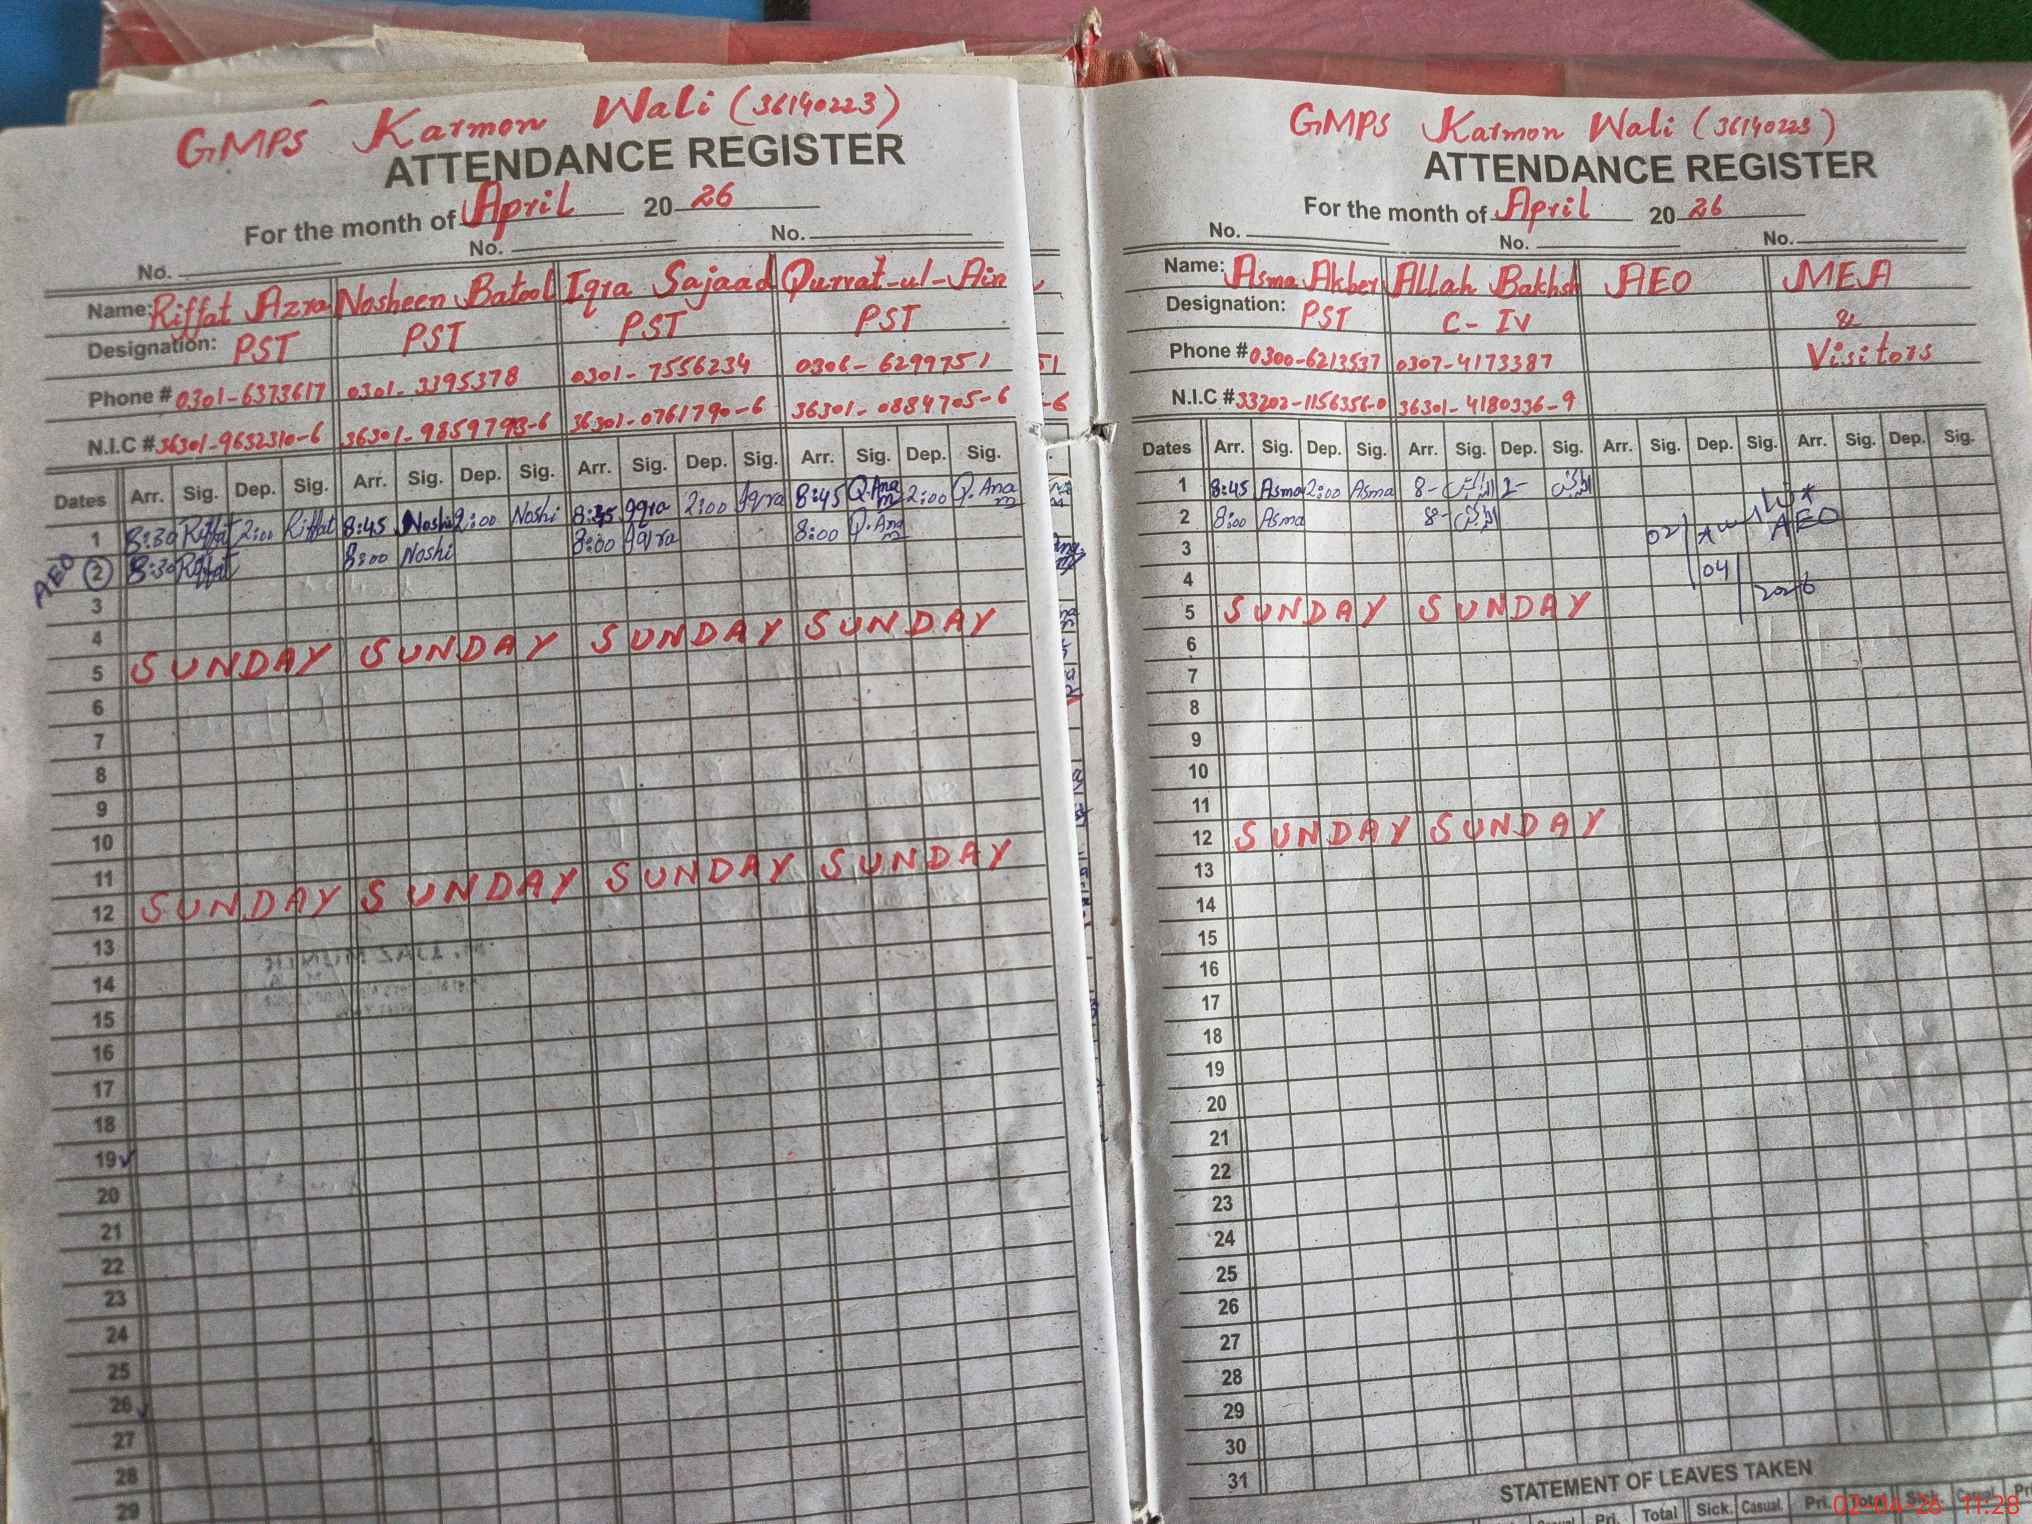 GMPS Karmon Wali (36140223)
ATTENDANCE REGISTER
For the month of April 2026
No. No. No.
Name: Riffat Azra Nosheen Batool Iqra Sajaad Qurrat-ul-Ain
Designation: PST PST PST PST
Phone # 0301-6373617 0301-3395378 0301-7556234 0306-6299751
N.I.C # 36301-9632310-6 36301-9859793-6 36301-0761790-6 36301-0884705-6
Dates Arr. Sig. Dep. Sig. Arr. Sig. Dep. Sig. Arr. Sig. Dep. Sig. Arr. Sig. Dep. Sig.
1 8:30 Riffat 2:00 Riffat 8:45 Noshi 2:00 Noshi 8:45 Iqra 2:00 Iqra 8:45 Q.Ana 2:00 Q.Ana
AEO 2 8:30 Riffat 8:00 Noshi 8:00 Iqra 8:00 Q.Ana
3
4
5 SUNDAY SUNDAY SUNDAY SUNDAY
6
7
8
9
10
11
12 SUNDAY SUNDAY SUNDAY SUNDAY
13
14
15
16
17
18
19
20
21
22
23
24
25
26
27
28
29
GMPS Karmon Wali (36140223)
ATTENDANCE REGISTER
For the month of April 2026
No. No. No.
Name: Asma Akber Allah Bakhsh AEO MEA
Designation: PST C-IV &
Phone # 0300-6213537 0307-4173387 Visitors
N.I.C # 33202-1156356-0 36301-4180336-9
Dates Arr. Sig. Dep. Sig. Arr. Sig. Dep. Sig. Arr. Sig. Dep. Sig. Arr. Sig. Dep. Sig.
1 8:45 Asma 2:00 Asma 8- 2-
2 8:00 Asma 8- 02 AEO
3
4 04 2026
5 SUNDAY SUNDAY
6
7
8
9
10
11
12 SUNDAY SUNDAY
13
14
15
16
17
18
19
20
21
22
23
24
25
26
27
28
29
30
31
STATEMENT OF LEAVES TAKEN
Pri. Total Sick. Casual. Pri. Total Sick. Casual
02-04-26 11:28